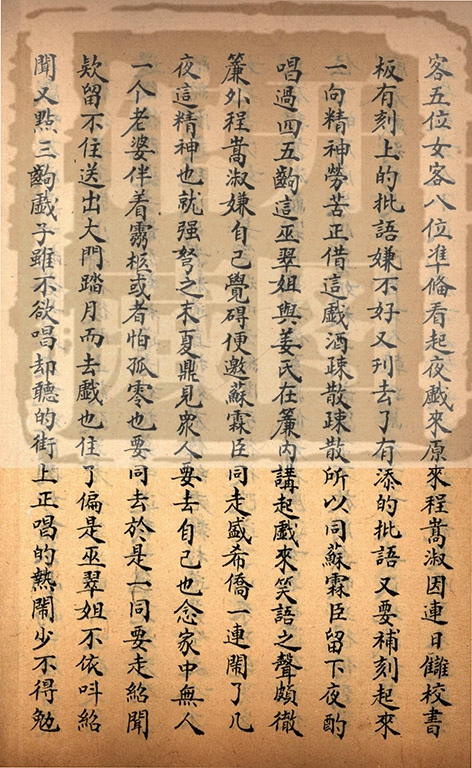 客五位女客八位準俻看起夜戲來原來程嵩淑因連日讎校書
板有刻上的批語嫌不好又刊去了有添的批語又要補刻起來
一向精神勞苦正借這戲酒疎散疎散所以同蘇霖臣留下夜酌
唱過四五齣這巫翠姐與姜氏在簾內講起戲來笑語之聲頗徹
簾外程嵩淑嫌自己覺碍便邀蘇霖臣同走盛希僑一連閙了几
夜這精神也就强弩之末夏鼎見眾人要去自己也念家中無人
一个老婆伴着靈柩或者怕孤零也要同去於是一同要走紹聞
欵留不住送出大門踏月而去戲也住了偏是巫翠姐不依呌紹
聞又點三齣戲子雖不欲唱却聽的街上正唱的熱閙少不得勉